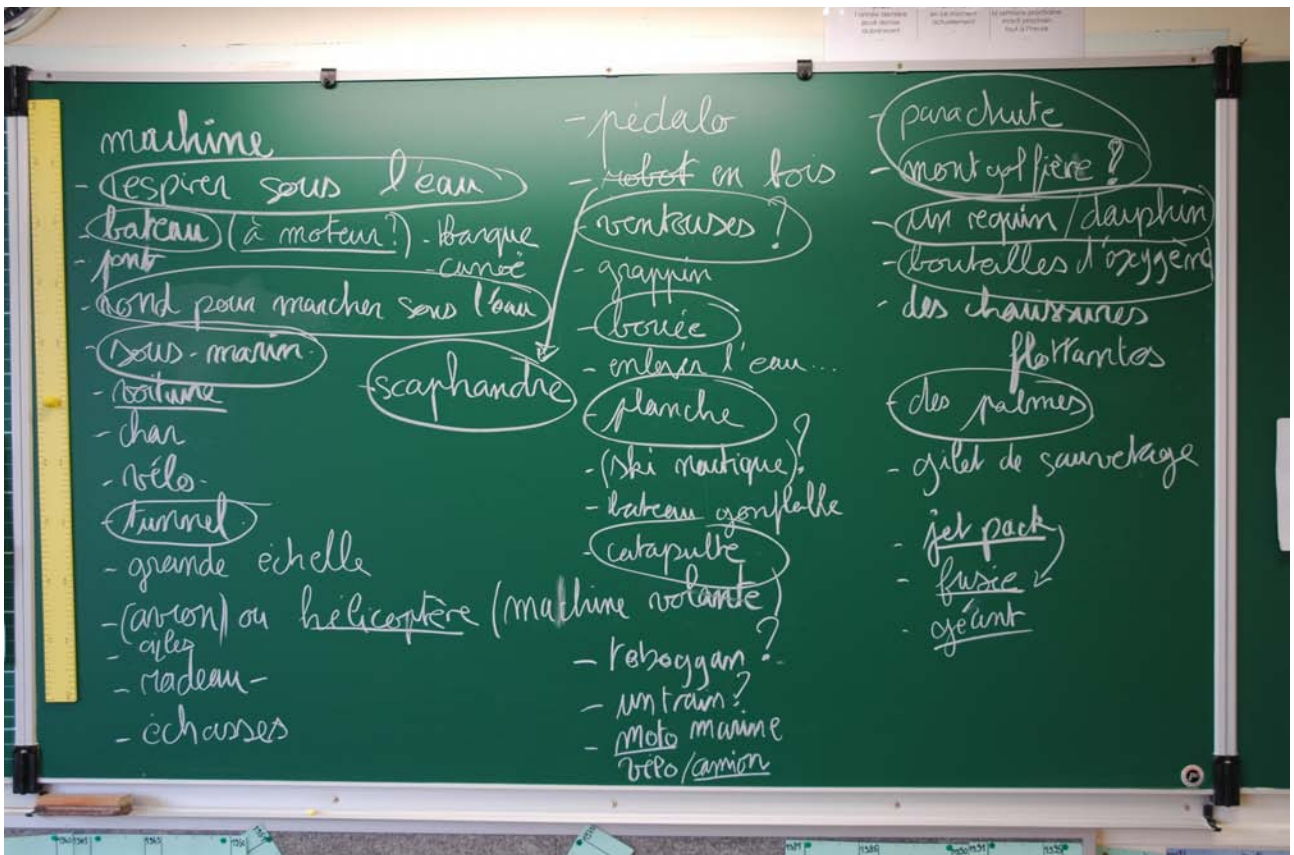 l'année dernière
en ce moment
actuellement
la semaine prochaine
tout à l'heure
machine
- respirer sous l'eau
- bateau (à moteur?) - barque
- canoë
- pont
- rond pour marcher sous l'eau
- sous-marin.
- voiture
- char
- vélo.
- tunnel.
- grande échelle
- (avion) ou hélicoptère (machine volante)
- ailes
- radeau -
- échasses
- scaphandre
- pédalo
- robot en bois
- ventouses?
- grappin
- bouée
- enlever l'eau...
- planche
- (ski nautique)?
- bateau gonflable
- catapulte
- toboggan?
- un train?
- moto marine
vélo/camion
- parachute
- montgolfière?
- un requin/dauphin
- bouteilles d'oxygène
- des chaussures
flottantes
- des palmes
- gilet de sauvetage
- jet pack
- fusée
- géant